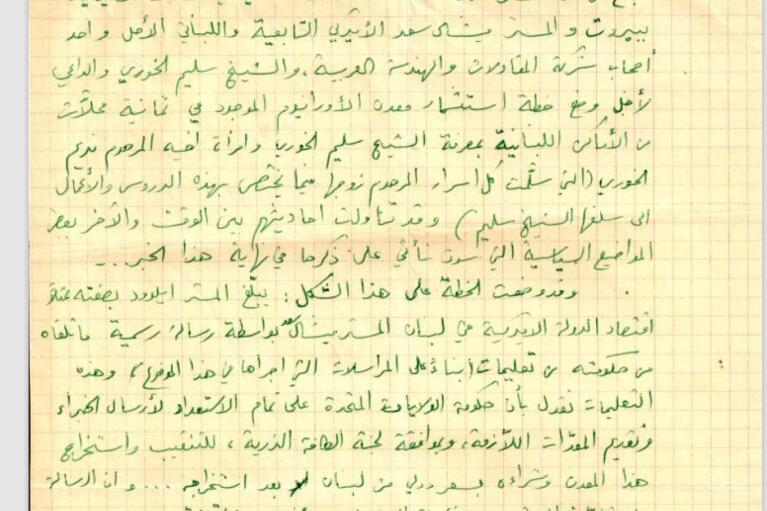 ببيروت والمستر ميشال سعد الأميركي التابعية واللبناني الأصل واحد
أصحاب شركة المقاولات والهندسة العربية، والشيخ سليم الخوري والداعي
لأجل وضع خطة استثمار معدن الأورانيوم الموجود في ثمانية محلات
من الأماكن اللبنانية بمعرفة الشيخ سليم الخوري وامرأة اخيه المرحوم نديم
الخوري (التي سلّمت كل اسرار المرحوم زوجها فيما يختص بهذه الدروس والأعمال
الى سلفها الشيخ سليم) وقد تناولت احاديثهم بين الوقت والآخر بعض
المواضيع السياسية التي سوف نأتي على ذكرها في نهاية هذا الخبر...
وقد وضعت الخطة على هذا الشكل: يبلّغ المستر ايلوود بصفته ممثلا
اقتصاد الدولة الاميركية في لبنان المستر ميشال سعد بواسطة رسالة رسمية ما تلقاه
من حكومته من تعليمات (بناءً على المراسلات التي اجراها في هذا الموضوع) وهذه
التعليمات تقول بأن حكومة الولايات المتحدة على تمام الاستعداد لأرسال الخبراء
وتقديم المعدّات اللازمة، وبموافقة لجنة الطاقة الذرية، للتنقيب واستخراج
هذا المعدن وشراءه بسعر دولي من لبنان بعد استخراجه ... وان الرسالة